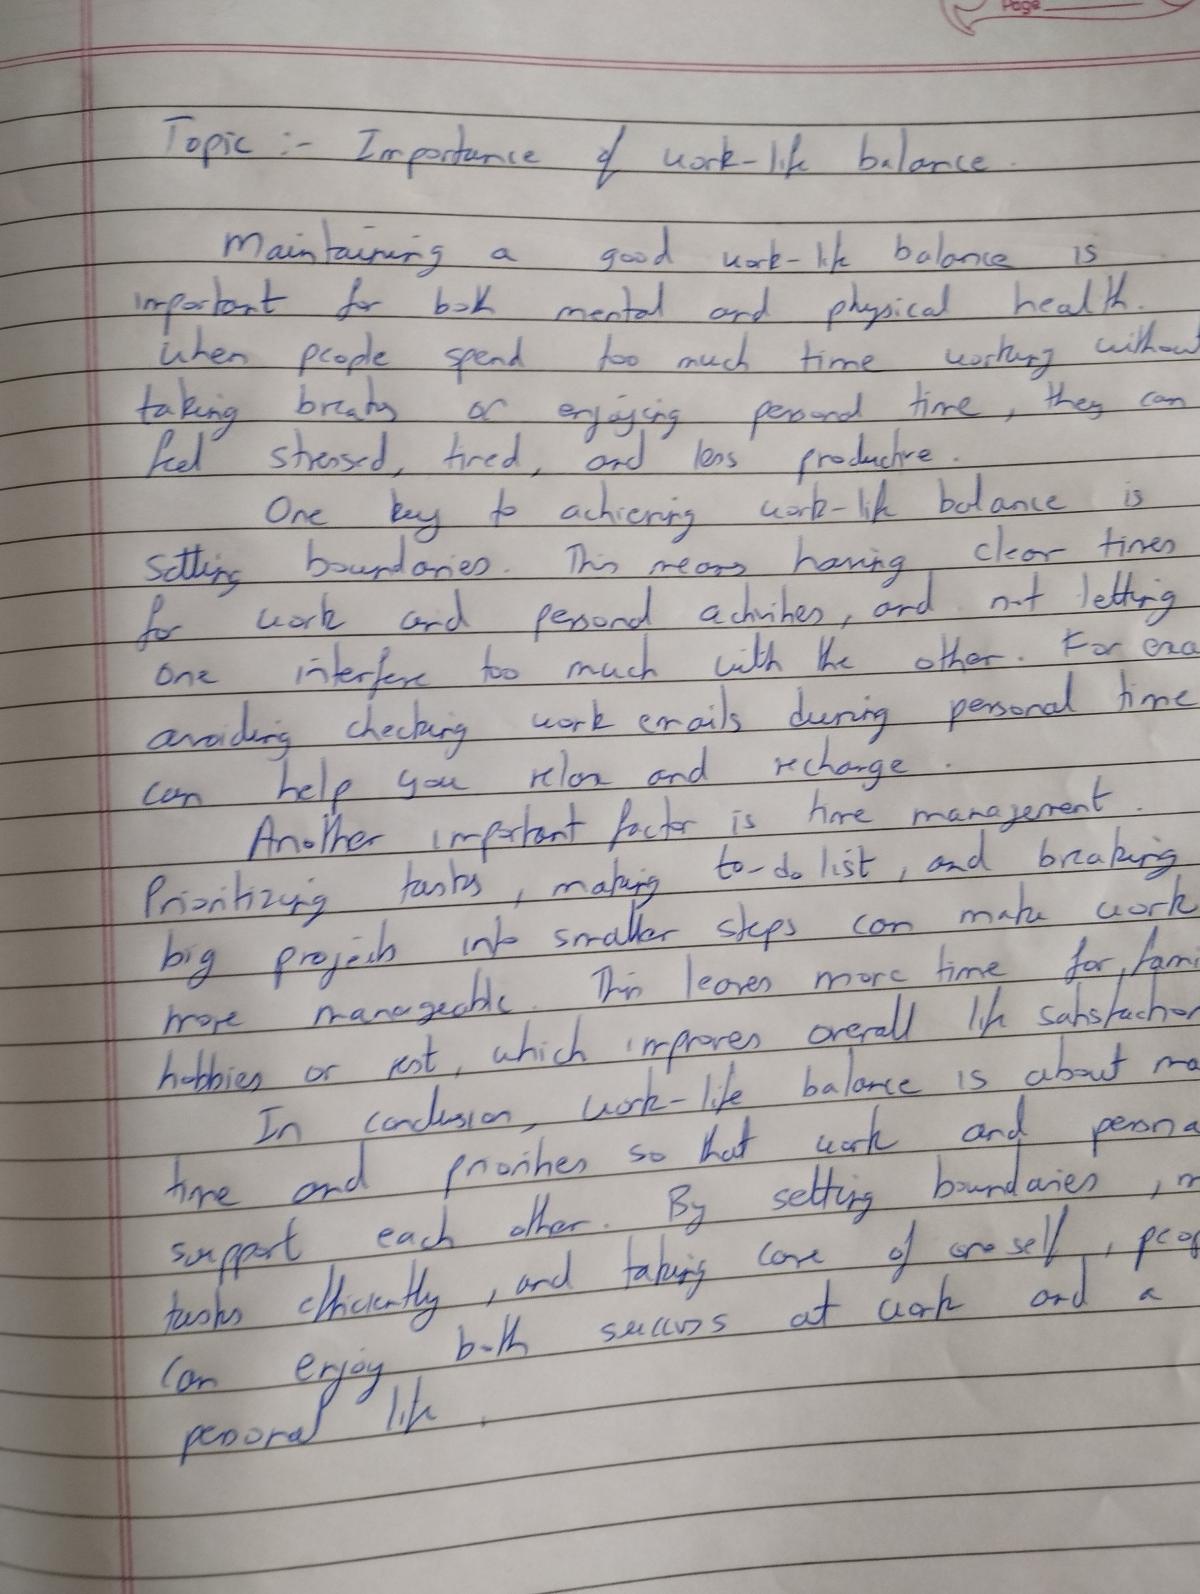 Page
Topic :- Importance of work-life balance.
Maintaining a good work-life balance is
important for both mental and physical health.
When people spend too much time working withou
taking breaks or enjoying personal time, they can
feel stressed, tired, and less productive.
One key to achieving work-life balance is
setting boundaries. This means having clear times
for work and personal activities, and not letting
one interfere too much with the other. For exa
avoiding checking work emails during personal time
can help you relax and recharge.
Another important factor is time management.
Prioritizing tasks, making to-do list, and breaking
big projects into smaller steps can make work
more manageable. This leaves more time for, fami
hobbies or rest, which improves overall life satisfaction
In conclusion, work-life balance is about ma
time and priorities so that work and persona
support each other. By setting boundaries, m
tasks efficiently, and taking care of oneself, peop
can enjoy both success at work and a
personal life.